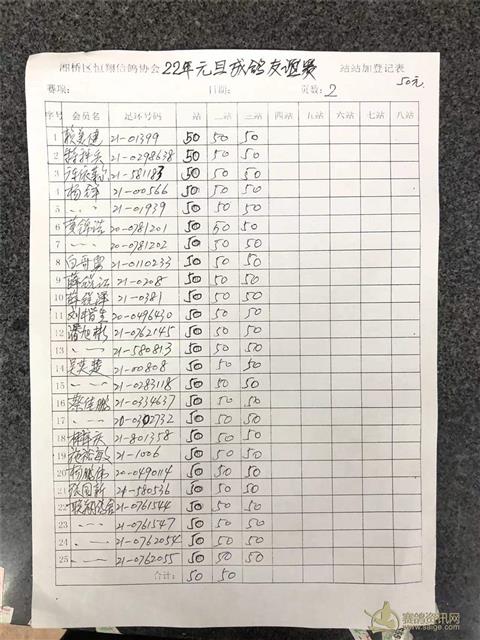 湘桥区恒翔信鸽协会 22年元旦成鸽友谊赛 站站加登记表
赛项: 日期: 页数:2 50元
序号 会员名 足环号码 一站 二站 三站 四站 五站 六站 七站 八站
1 21-01399 50 50 50
2 21-0298638 50 50 50
3 21-581183 50 50 50
4 杨锋 21-00566 50 50 50
5 〃 21-01939 50 50 50
6 黄锦浩 20-0781201 50 50 50
7 〃 20-0781202 50 50 50
8 21-0110233 50 50 50
9 21-0208 50 50 50
10 21-0381 50 50 50
11 20-0496430 50 50 50
12 潘旭彬 21-0762145 50 50 50
13 〃 21-580813 50 50 50
14 吴英楚 21-00808 50 50 50
15 〃 21-0283118 50 50 50
16 蔡佳鹏 21-0334637 50 50 50
17 〃 20-0302732 50 50 50
18 21-801358 50 50 50
19 21-1006 50 50 50
20 杨鹏伟 20-0490114 50 50 50
21 张国新 21-580536 50 50 50
22 21-0761544 50 50 50
23 〃 21-0761547 50 50 50
24 〃 21-0762054 50 50 50
25 〃 21-0762055 50 50 50
合计: 50 50
赛鸽资讯网
www.saige.com